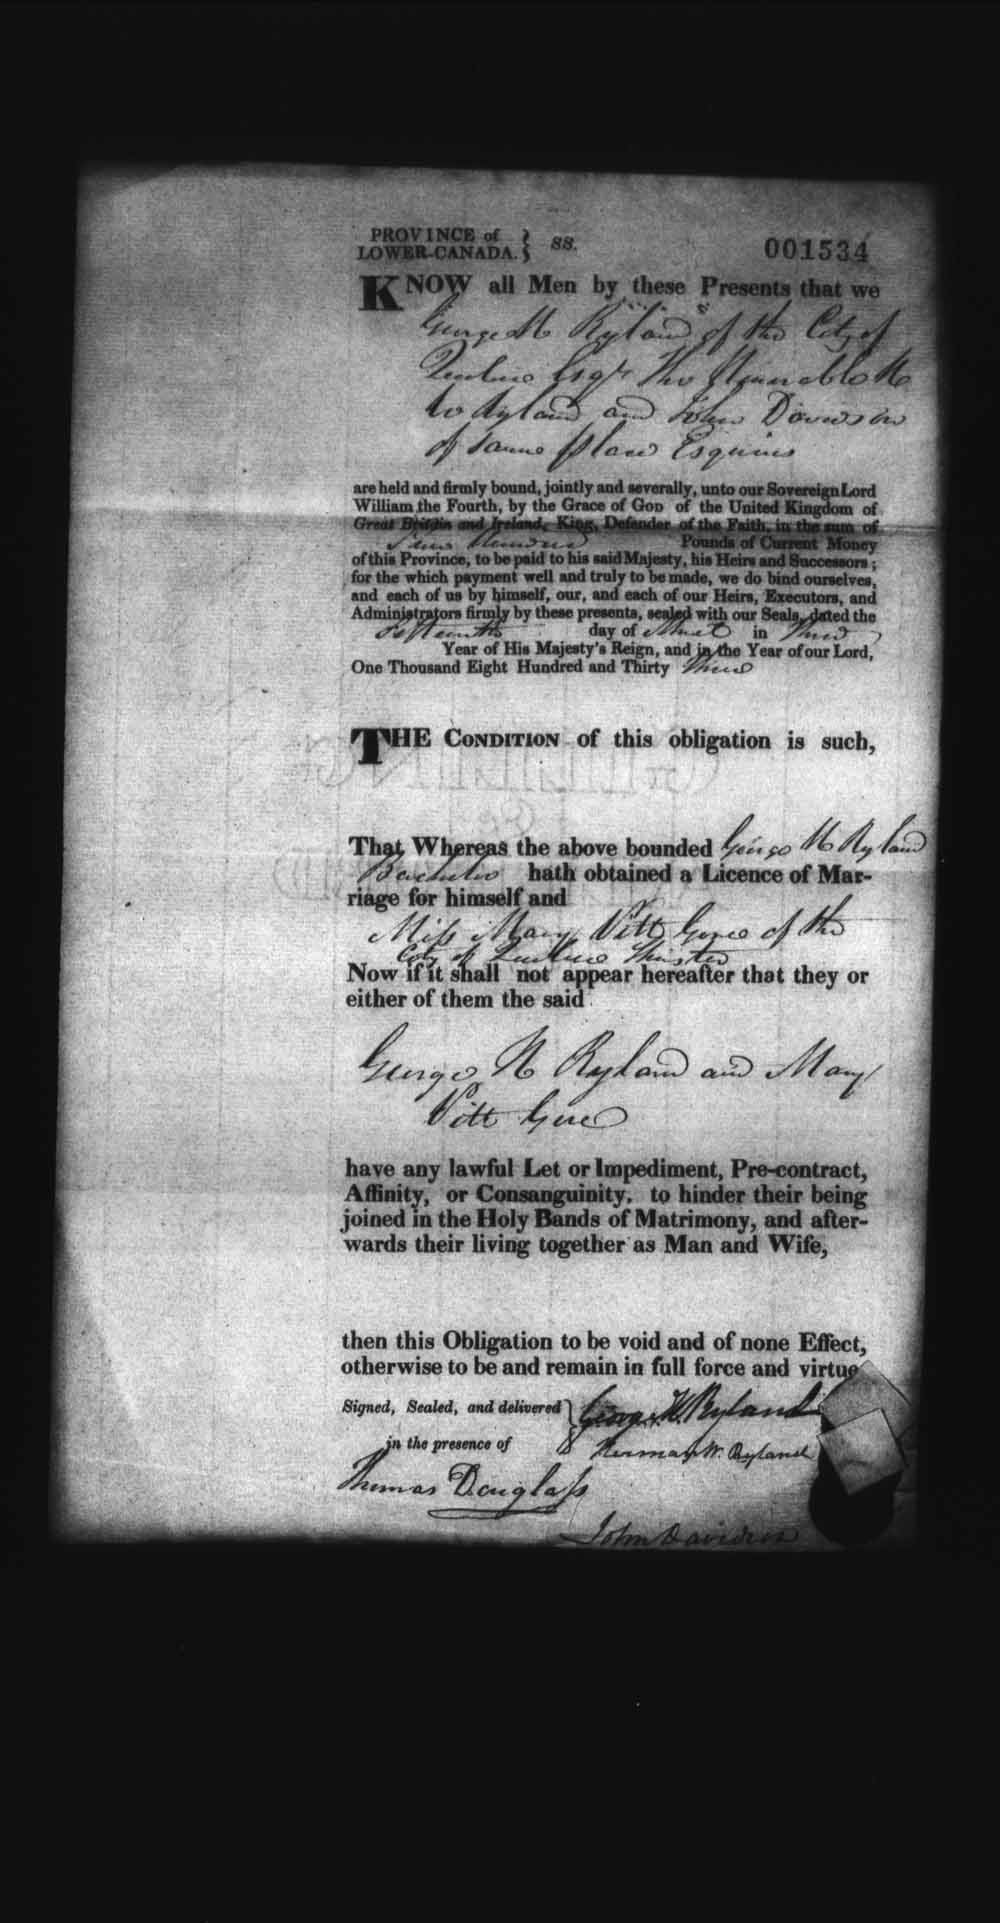 PROVINCE of
LOWER-CANADA. } SS.
001534
KNOW all Men by these Presents that we
George H Ryland of the City of
Quebec Esqr The Honorable H
W Ryland and John Davidson
of same place Esquires
are held and firmly bound, jointly and severally, unto our Sovereign Lord
William the Fourth, by the Grace of GOD of the United Kingdom of
Great Britain and Ireland, King, Defender of the Faith, in the sum of
Hundred Pounds of Current Money
of this Province, to be paid to his said Majesty, his Heirs and Successors;
for the which payment well and truly to be made, we do bind ourselves,
and each of us by himself, our, and each of our Heirs, Executors, and
Administrators firmly by these presents, sealed with our Seals, dated the
day of in Third
Year of His Majesty's Reign, and in the Year of our Lord,
One Thousand Eight Hundred and Thirty Three
THE CONDITION of this obligation is such,
That Whereas the above bounded George H Ryland
Bachelor hath obtained a Licence of Mar-
riage for himself and
Miss Mary Pitt Gore of the
City of Quebec Spinster
Now if it shall not appear hereafter that they or
either of them the said
George H Ryland and Mary
Pitt Gore
have any lawful Let or Impediment, Pre-contract,
Affinity, or Consanguinity, to hinder their being
joined in the Holy Bands of Matrimony, and after-
wards their living together as Man and Wife,
then this Obligation to be void and of none Effect,
otherwise to be and remain in full force and virtue
Signed, Sealed, and delivered } George H. Ryland
in the presence of Herman W. Ryland
Thomas Douglass
John Davidson